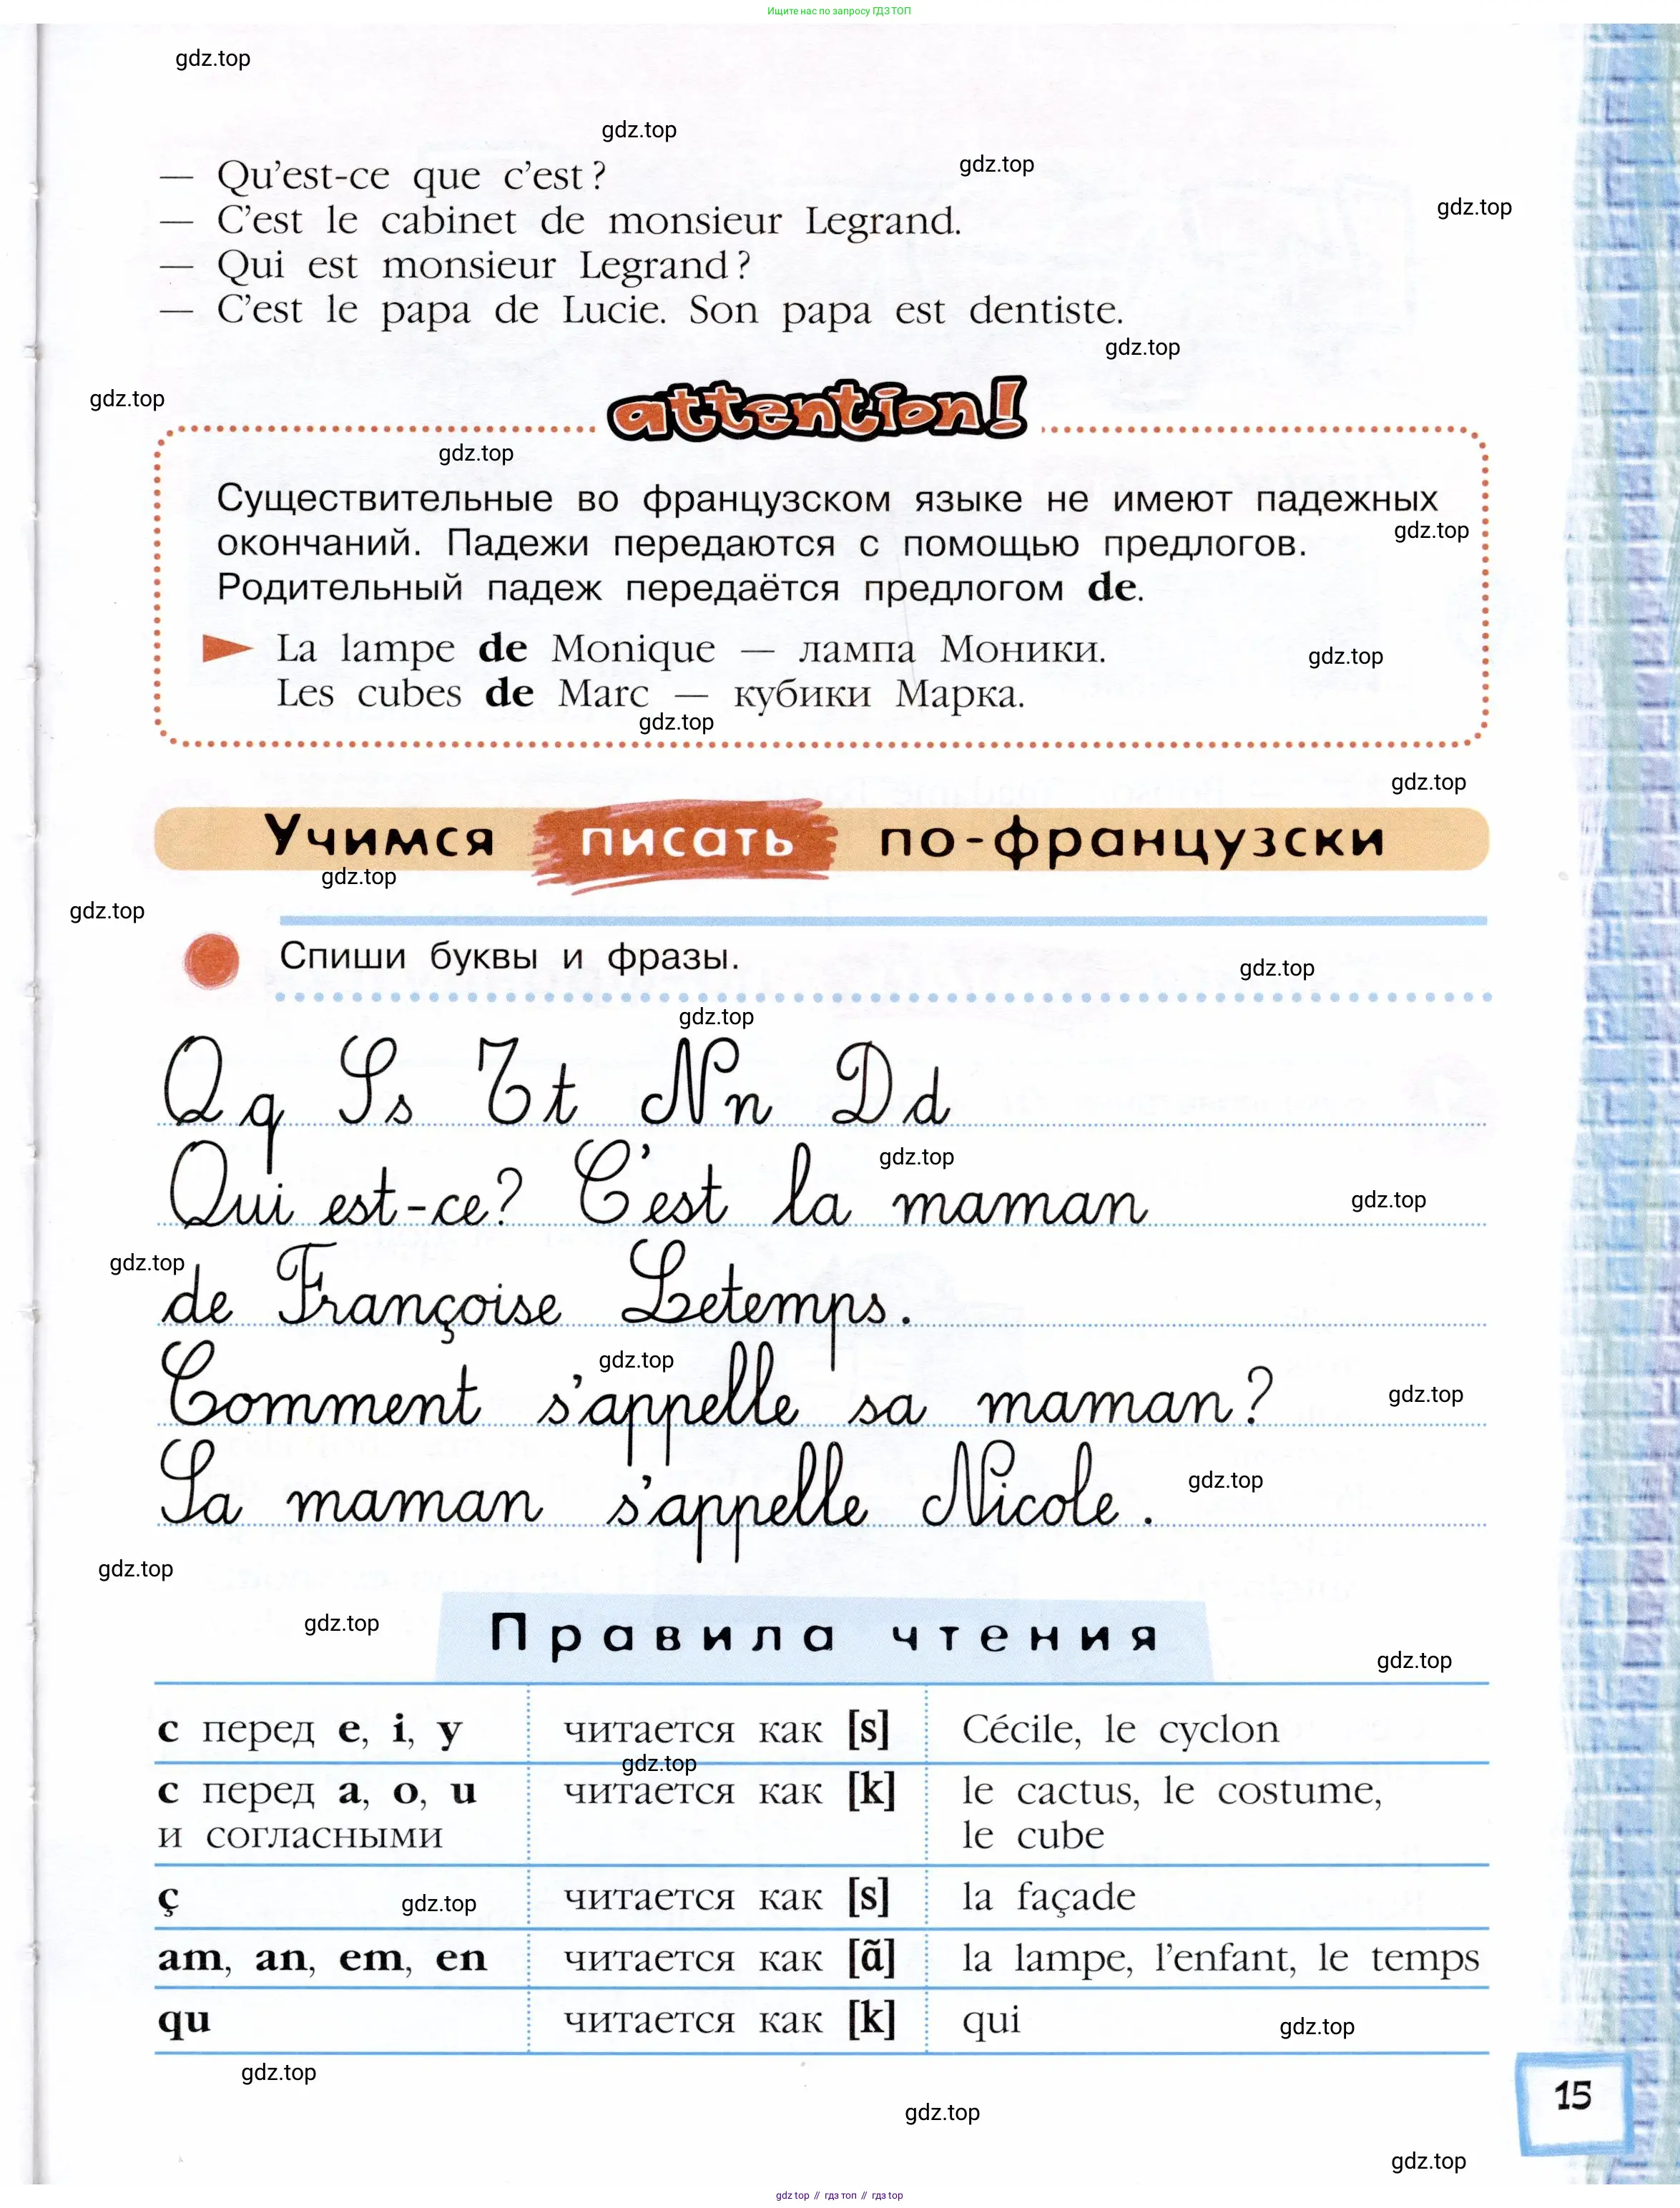 Ищите нас по запросу ГДЗ ТОП
gdz.top
gdz.top
gdz.top
— Qu'est-ce que c'est ?
gdz.top
— C'est le cabinet de monsieur Legrand.
— Qui est monsieur Legrand ?
— C'est le papa de Lucie. Son papa est dentiste.
gdz.top
gdz.top
attention!
gdz.top
Существительные во французском языке не имеют падежных
gdz.top
окончаний. Падежи передаются с помощью предлогов.
Родительный падеж передаётся предлогом de.
La lampe de Monique — лампа Моники.
gdz.top
Les cubes de Marc — кубики Марка.
gdz.top
gdz.top
Учимся писать по-французски
gdz.top
gdz.top
Спиши буквы и фразы.
gdz.top
gdz.top
Qq Ss Tt Nn Dd
gdz.top
Qui est-ce? C'est la maman
gdz.top
gdz.top
de Françoise Letemps.
gdz.top
Comment s'appelle sa maman?
gdz.top
gdz.top
Sa maman s'appelle Nicole.
gdz.top
gdz.top
Правила чтения
gdz.top
c перед e, i, y читается как [s] Cécile, le cyclon
gdz.top
c перед a, o, u читается как [k] le cactus, le costume,
и согласными le cube
ç читается как [s] la façade
gdz.top
am, an, em, en читается как [ɑ̃] la lampe, l'enfant, le temps
qu читается как [k] qui
gdz.top
gdz.top
15
gdz.top
gdz.top
gdz top // гдз топ // гдз top